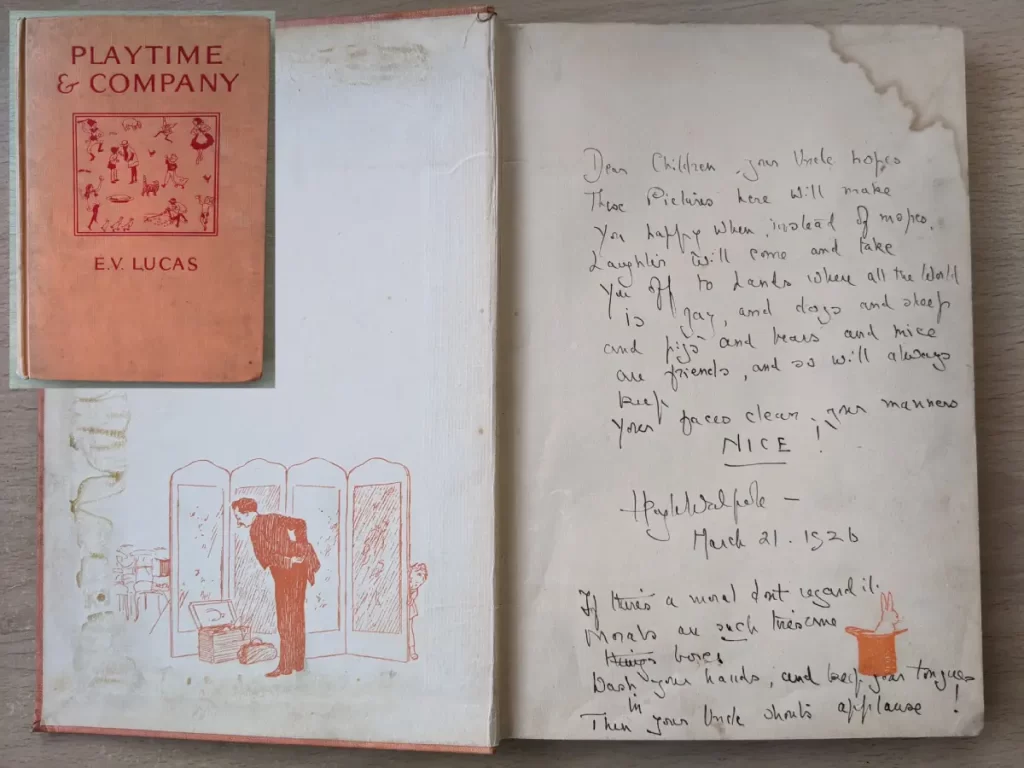 PLAYTIME
& COMPANY
E.V. LUCAS
Dear Children, your Uncle hopes
These Pictures here will make
You happy when, instead of mopes,
Laughter will come and take
You off to Lands where all the World
is gay, and dogs and sheep
and pigs and bears and mice
are friends, and so will always
keep
your faces clean, your manners
NICE !
Hugh Walpole —
March 21. 1926
If there's a moral don't regard it.
Morals are such tiresome
things bores
Wash your hands, and keep your tongues
in
Then your Uncle shouts applause !